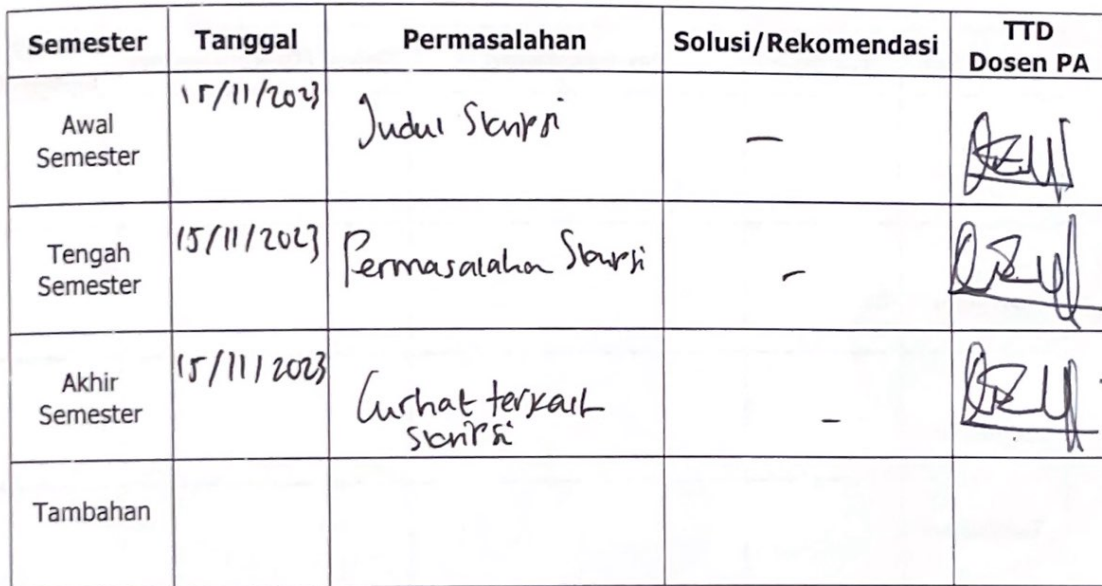 Semester Tanggal Permasalahan Solusi/Rekomendasi TTD
Dosen PA
Awal
Semester
15/11/2023
Judul Skripsi
-
Tengah
Semester
15/11/2023
Permasalahan Skripsi
-
Akhir
Semester
15/11/2023
Curhat terkait
skripsi
-
Tambahan